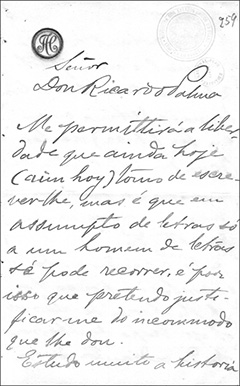 H
959
Señor
Don Ricardo Palma
Me permittirá a liber-
dade que ainda hoje
(aún hoy) tomo de escre-
ver-lhe, mas é que em
assumpto de letras só
a um homem de letras
se póde recorrer, é por
isso que pretendo justi-
ficar-me do incommodo
que lhe dou.
Estudo muito a historia